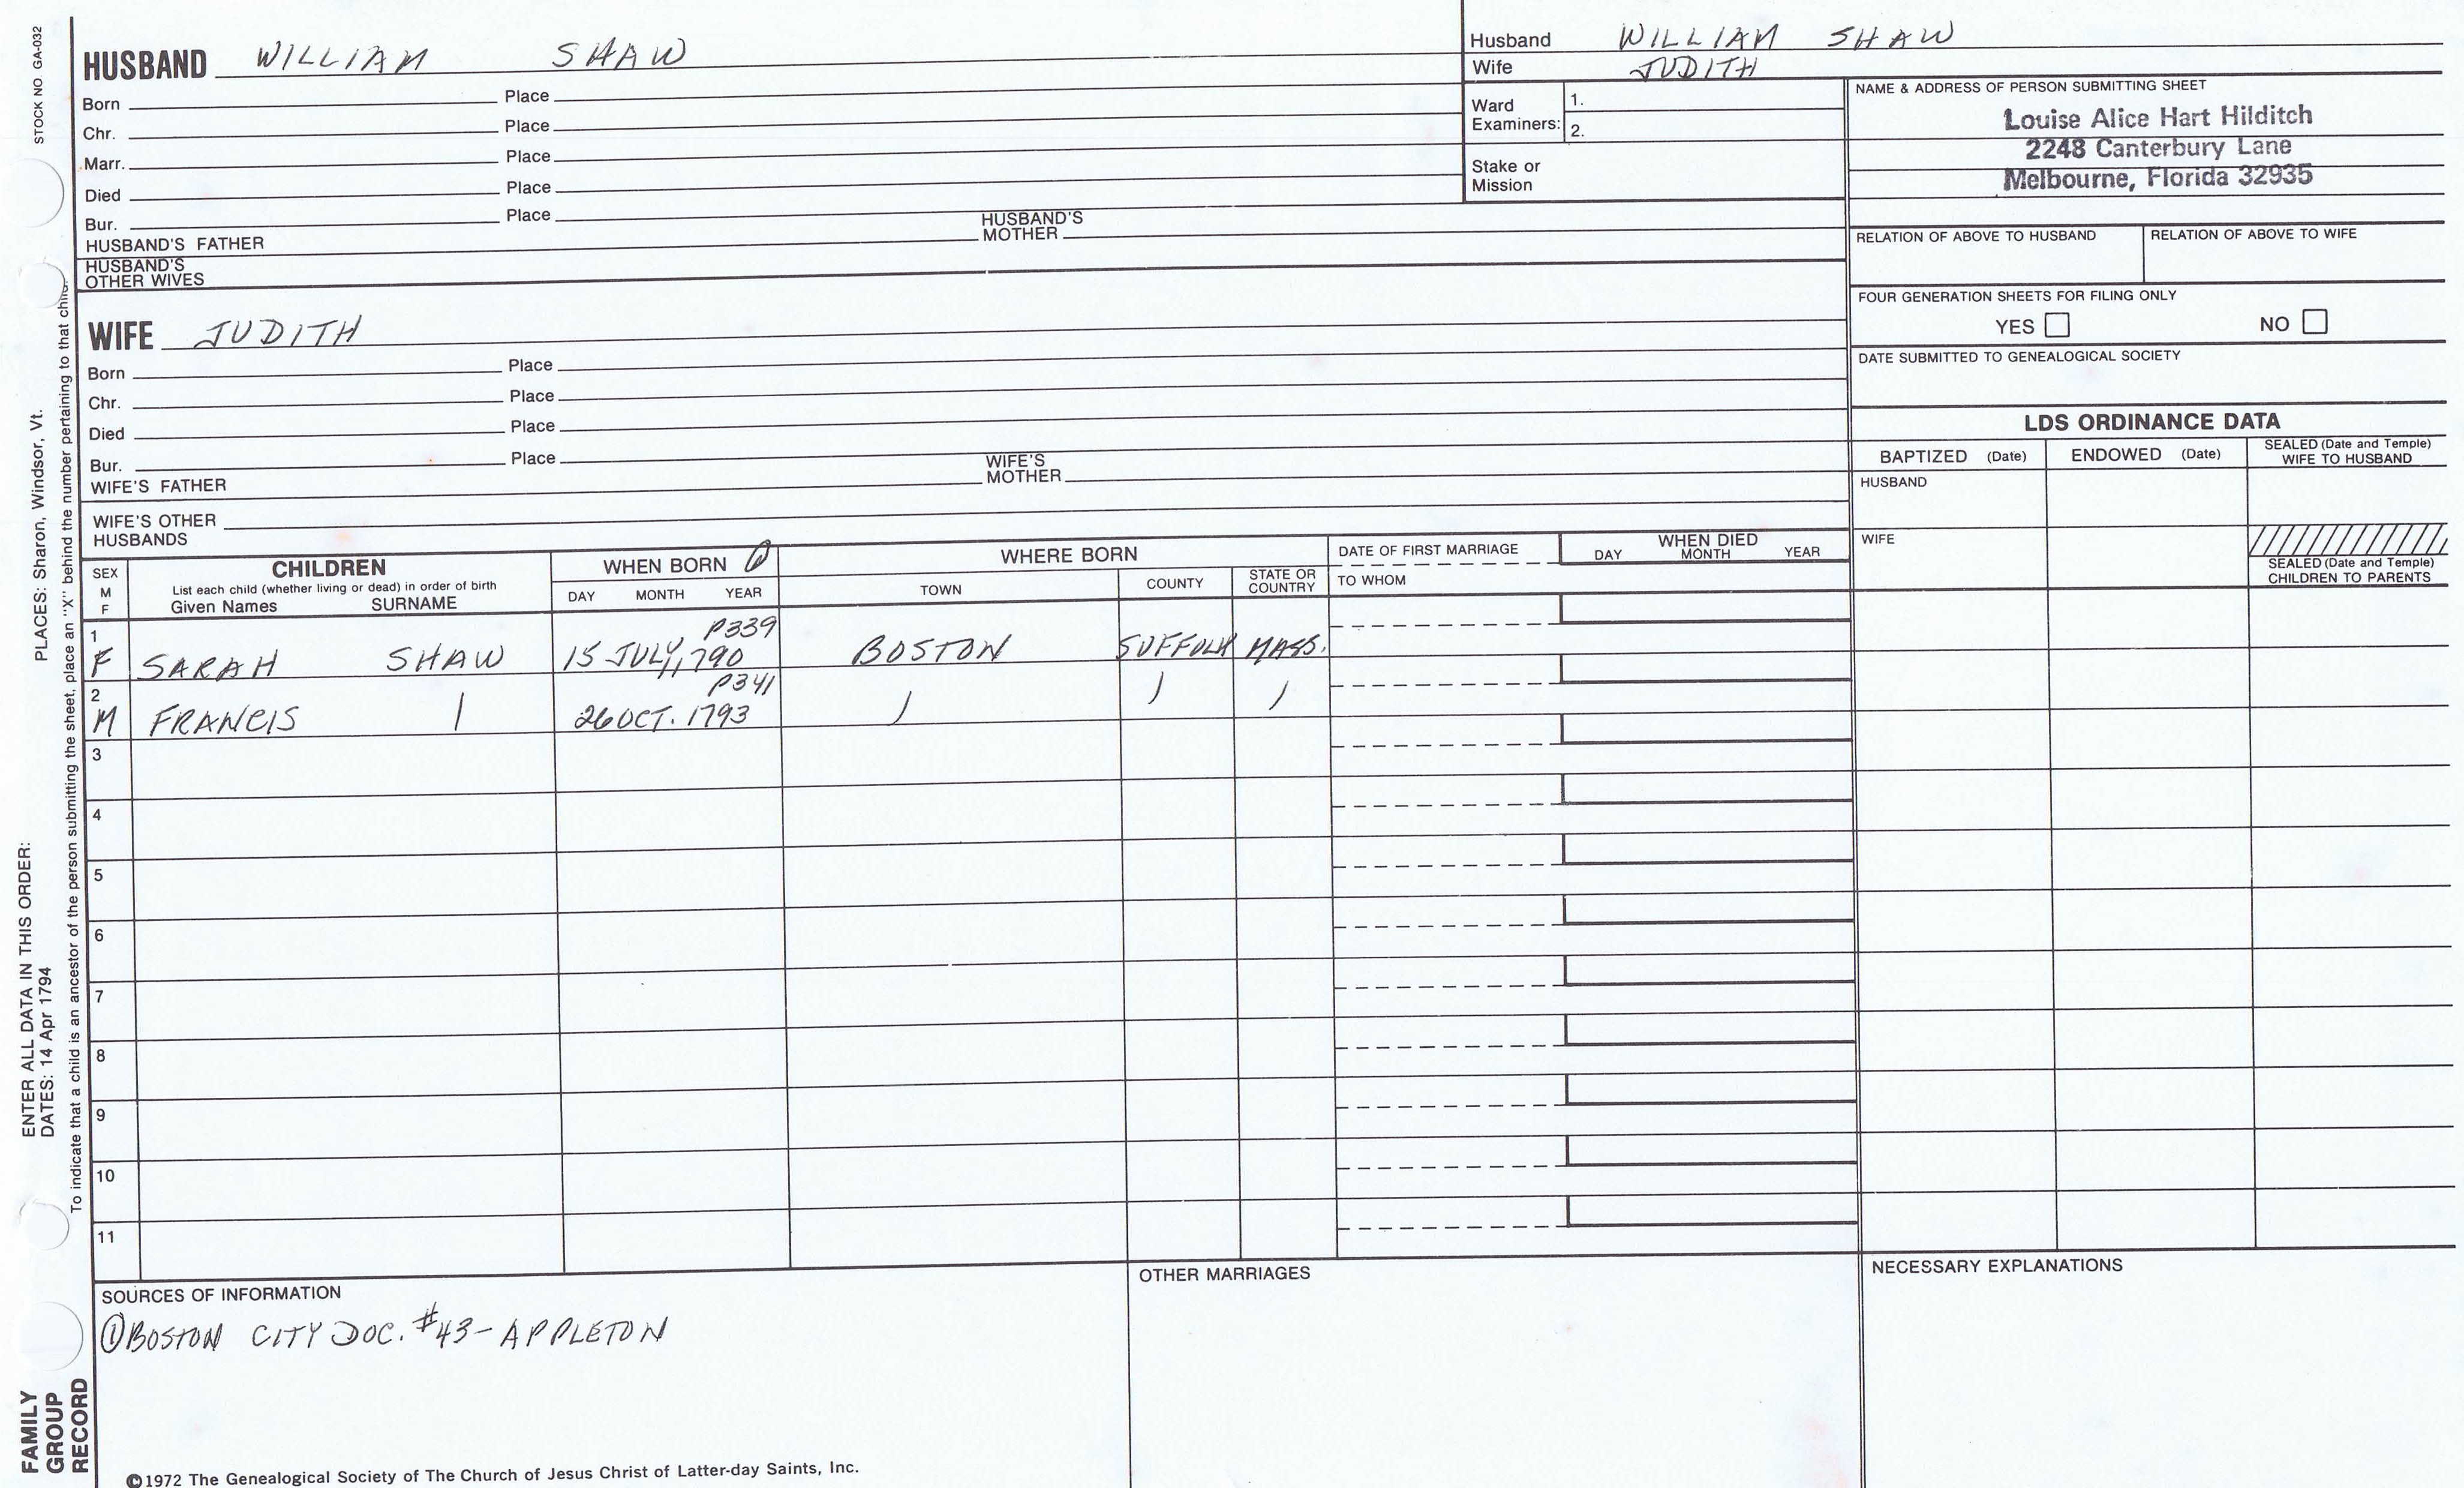 STOCK NO GA-032
HUSBAND WILLIAM SHAW
Born Place
Chr. Place
Marr. Place
Died Place
Bur. Place
HUSBAND'S FATHER HUSBAND'S MOTHER
HUSBAND'S OTHER WIVES
Husband WILLIAM SHAW
Wife JUDITH
Ward Examiners: 1.
2.
Stake or Mission
NAME & ADDRESS OF PERSON SUBMITTING SHEET
Louise Alice Hart Hilditch
2248 Canterbury Lane
Melbourne, Florida 32935
RELATION OF ABOVE TO HUSBAND RELATION OF ABOVE TO WIFE
FOUR GENERATION SHEETS FOR FILING ONLY
YES NO
DATE SUBMITTED TO GENEALOGICAL SOCIETY
WIFE JUDITH
Born Place
Chr. Place
Died Place
Bur. Place
WIFE'S FATHER WIFE'S MOTHER
WIFE'S OTHER HUSBANDS
LDS ORDINANCE DATA
BAPTIZED (Date) ENDOWED (Date) SEALED (Date and Temple) WIFE TO HUSBAND
HUSBAND
WIFE
SEALED (Date and Temple)
CHILDREN TO PARENTS
SEX M F
CHILDREN
List each child (whether living or dead) in order of birth
Given Names SURNAME
WHEN BORN
DAY MONTH YEAR
WHERE BORN
TOWN COUNTY STATE OR COUNTRY
DATE OF FIRST MARRIAGE
TO WHOM
WHEN DIED
DAY MONTH YEAR
1 P339
F SARAH SHAW 15 JULY, 1790 BOSTON SUFFOLK MASS.
2 P341
M FRANCIS | 26 OCT. 1793 | | |
3
4
5
6
7
8
9
10
11
SOURCES OF INFORMATION
① BOSTON CITY DOC. #43 - APPLETON
OTHER MARRIAGES
NECESSARY EXPLANATIONS
ENTER ALL DATA IN THIS ORDER:
DATES: 14 Apr 1794 PLACES: Sharon, Windsor, Vt.
To indicate that a child is an ancestor of the person submitting the sheet, place an "X" behind the number pertaining to that child.
FAMILY
GROUP
RECORD
©1972 The Genealogical Society of The Church of Jesus Christ of Latter-day Saints, Inc.